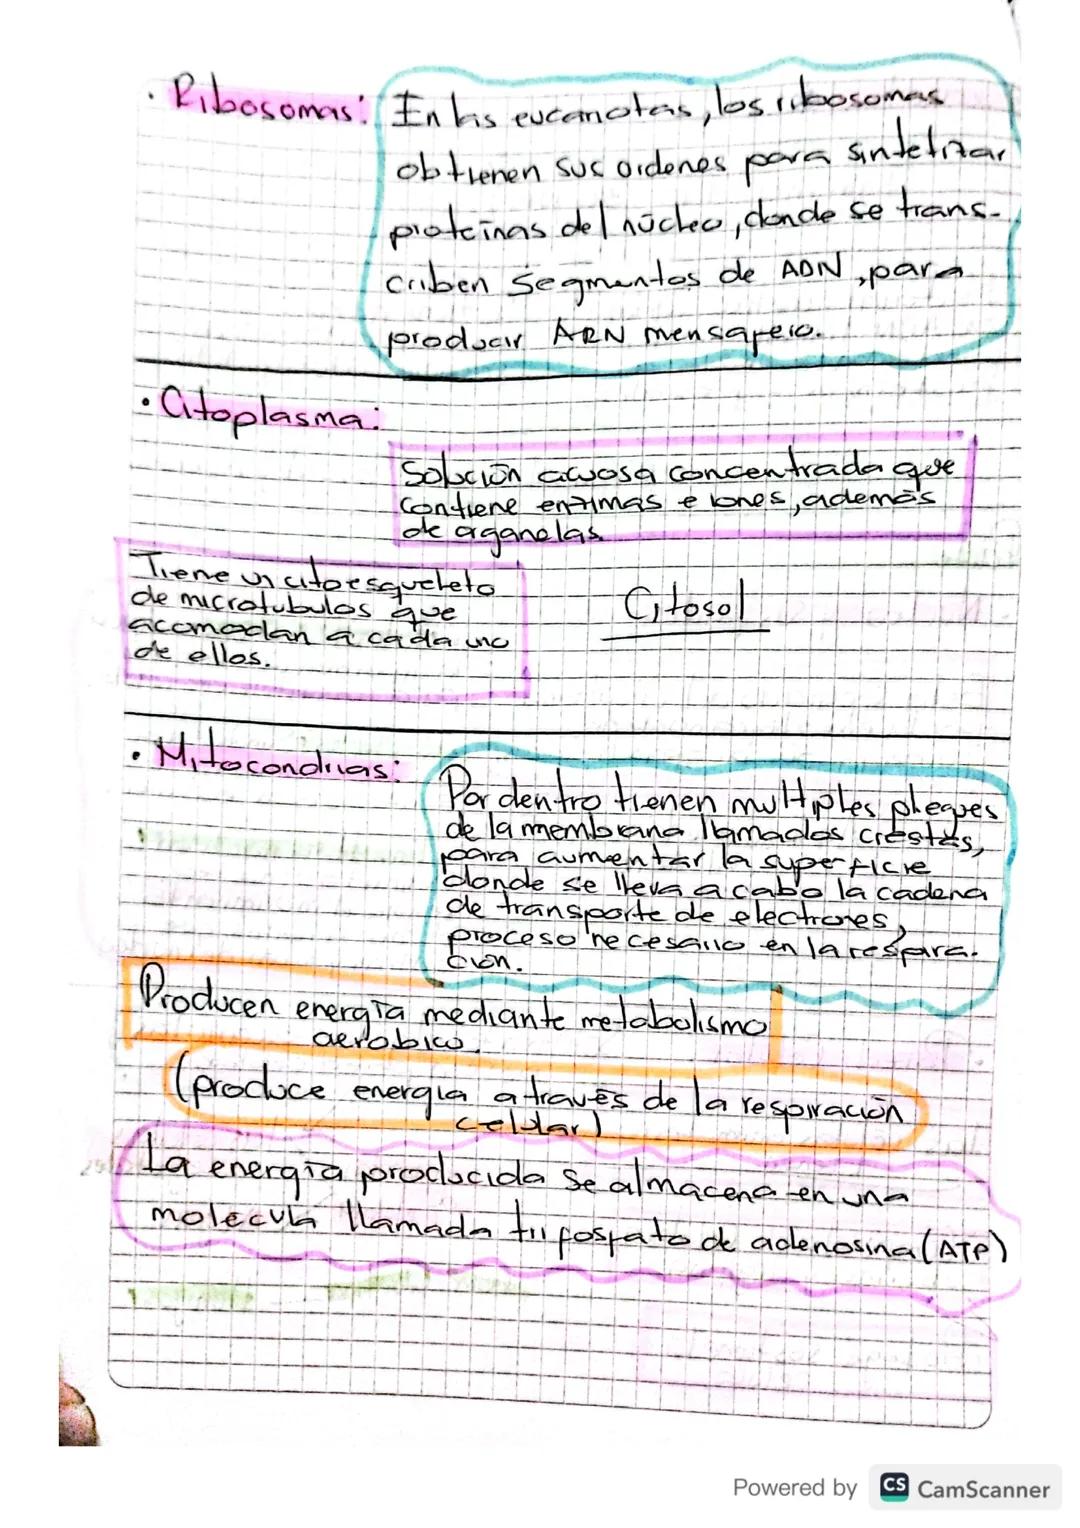 · Ribosomas: En las eucariotas, los ribosomas
obtienen sus ordenes para sintetizar
proteínas del núcleo, donde se trans-
criben segmentos de ADN, para
producir ARN mensajero.
· Citoplasma:
Solución acuosa concentrada que
contiene enzimas e iones, además
de organelas.
Tiene un citoesqueleto
de microtubulos que
acomodan a cada uno
de ellos.
Citosol
· Mitocondrias:
Por dentro tienen multiples pliegues
de la membrana llamados crestas,
para aumentar la superficie
donde se lleva a cabo la cadena
de transporte de electrones,
proceso necesario en la respira-
ción.
Producen energía mediante metabolismo
aerobico.
(produce energia a través de la respiración
celular)
La energía producida se almacena en una
molecula llamada trifosfato de adenosina (ATP)
Powered by CS CamScanner